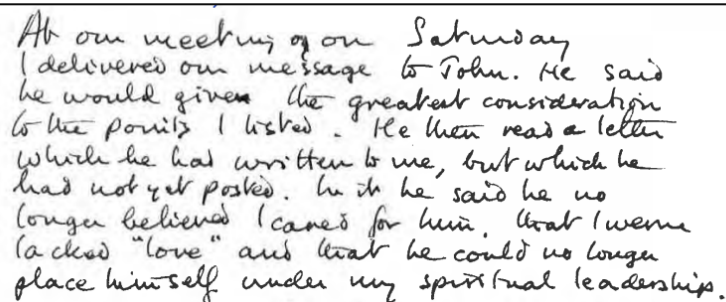 At our meeting of on Saturday
I delivered our message to John. He said
he would given the greatest consideration
to the points I listed. He then read a letter
which he had written to me, but which he
had not yet posted. In it he said he no
longer believed I cared for him, that I
lacked "love" and that he could no longer
place himself under my spiritual leadership.